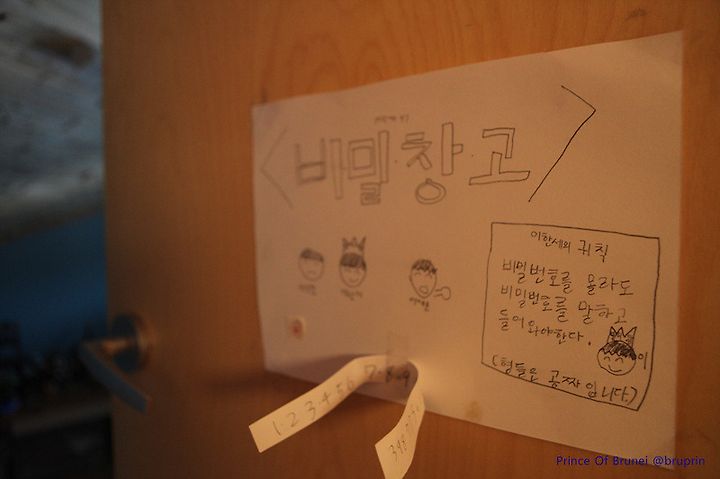 <비밀창고>
이한세의 규칙
비밀번호를 몰라도
비밀번호를 말하고
들어와야한다.
(형들은 공짜입니다.)
1·2·3·4·5·6·7·8·9
Prince Of Brunei @bruprin